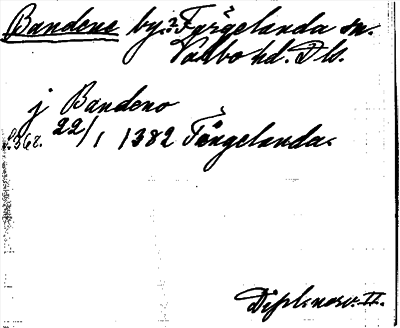 Bandene by: Fyrgelanda sn.
Valbo hd. Dls.
j Bandeno
s. 362. 22/1 1382 Færgelanda.
Dipl. norv. II.